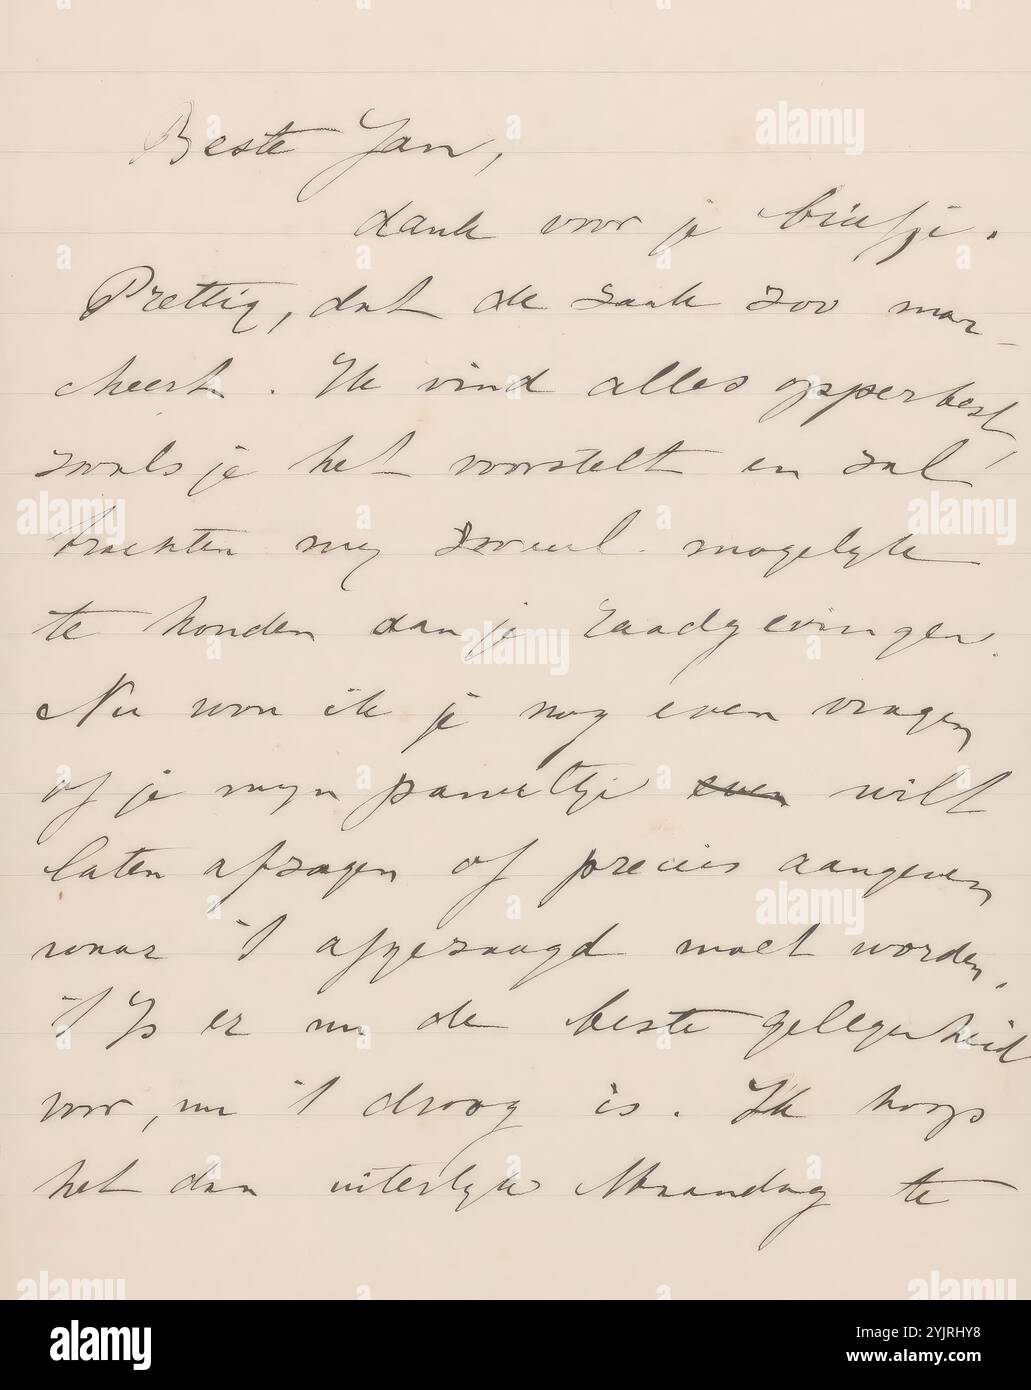 Beste Jan,
dank voor je briefje.
Prettig, dat de zaak zoo mar-
cheert. Ik vind alles opperbest,
zooals je het voorstelt en zal
trachten my zooveel mogelyk
te houden aan je raadgevingen.
Nu wou ik je nog even vragen
of je myn paneeltje even wilt
laten afzagen of precies aangeven
waar 't afgezaagd moet worden.
't Is er nu de beste gelegenheid
voor, nu 't droog is. Ik hoop
het dan uiterlyk Maandag te
alamy
a
alamy
Image ID: 2YJRHY8
www.alamy.com